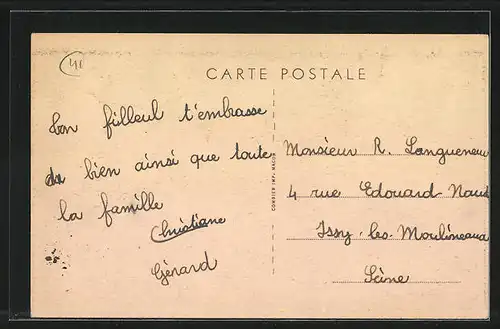 41
CARTE POSTALE
Ton filleul t'embrasse
bien ainsi que toute
la famille
Christiane
Gérard
COMBIER IMP. MACON
Monsieur R. Langueneux
4 rue Edouard Naud
Issy-les-Moulineaux
Seine